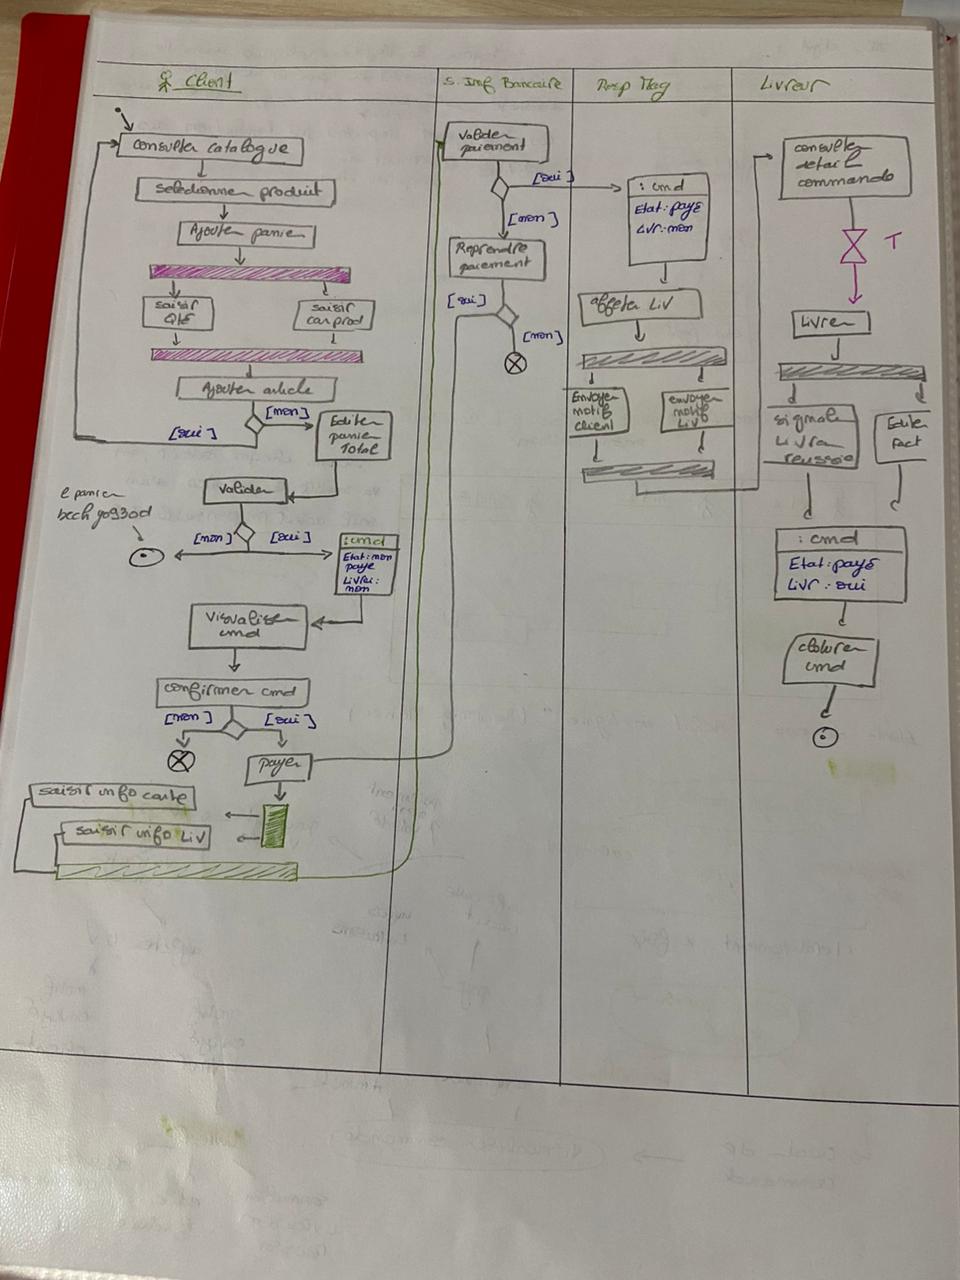 Client
S. Inf Bancaire
Resp Mag
Livreur
consulter catalogue
selectionner produit
Ajouter panier
saisir
Qté
saisir
car prod
Ajouter article
[non]
[oui]
Editer
panier
Total
valider
e panier
bech yo93od
[non]
[oui]
: cmd
Etat: non
paye
Livrei:
non
visualiser
cmd
confirmer cmd
[non]
[oui]
payer
saisir info carte
saisir info Liv
valider
paiement
[oui]
[non]
Reprendre
paiement
[oui]
[non]
: cmd
Etat: payé
Livr: non
affecter Liv
Envoyer
notif
client
envoyer
notif
Liv
consulter
detail
commande
T
Livrer
signaler
Livran
reussie
Editer
fact
: cmd
Etat: payé
Livr: oui
cloturer
cmd